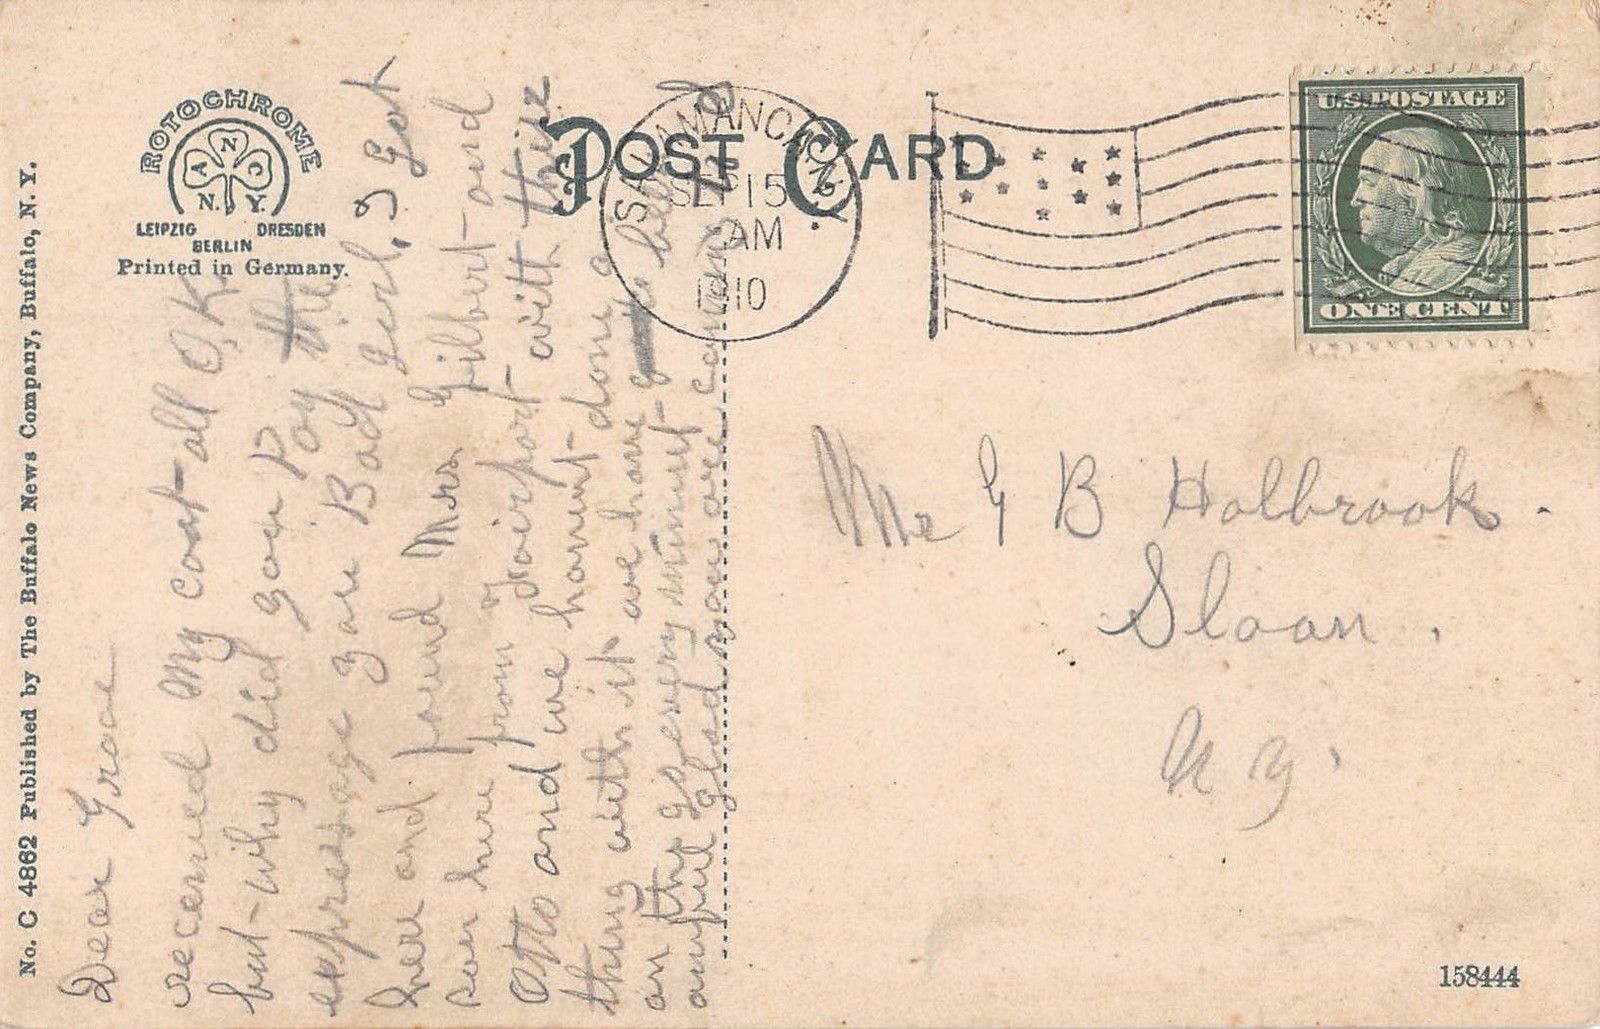 No. C 4862 Published by The Buffalo News Company, Buffalo, N. Y.
ROTOCHROME
A N C
N. Y.
LEIPZIG DRESDEN
BERLIN
Printed in Germany.
POST CARD
SALAMANCA, N.Y.
SEP 15
AM
1910
U.S. POSTAGE
ONE CENT
Dear Grace
received My coat all O.K.
but why did you Pay the
expressage you Bad Girl. I Got
here and found Mrs Gilbert and
son here from Fairport with their
Otto and we havent done a
thing with it we have
on the go every minute
awful glad you are coming
Mr G B Holbrook.
Sloan.
N Y.
158444